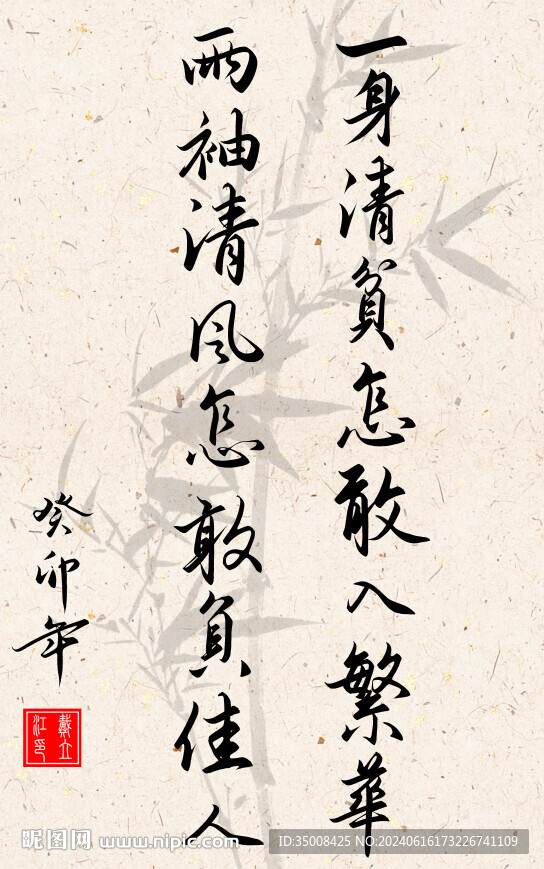 一身清貧怎敢入繁華
兩袖清风怎敢負佳人
癸卯年
戴立江印
昵图网 www.nipic.com
ID:35008425 NO:20240616173226741109